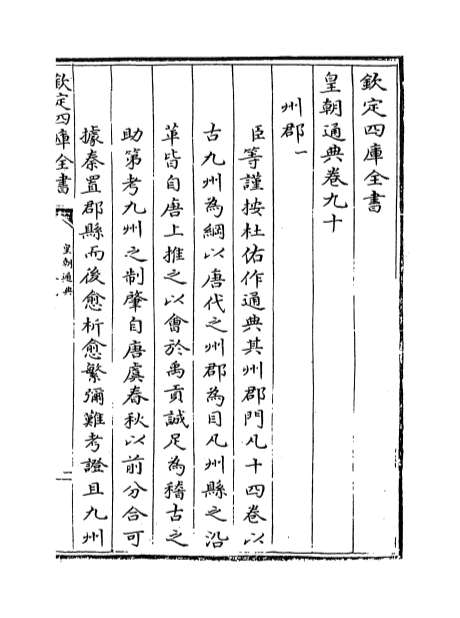 欽定四庫全書
皇朝通典卷九十
州郡一
臣等謹按杜佑作通典其州郡門凡十四卷以
古九州為綱以唐代之州郡為目凡州縣之沿
革皆自唐上推之以會於禹貢誠足為稽古之
助第考九州之制肇自唐虞春秋以前分合可
據秦置郡縣而後愈析愈繁彌難考證且九州
欽定四庫全書
皇朝通典